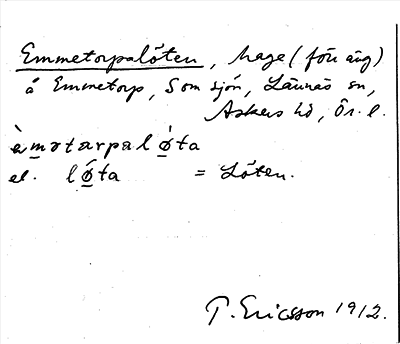 Emmetorpalöten, hage (förr äng)
å Emmetorp, Som sjön, Lännäs sn,
Askers hd, Ör. l.
èmotarpaló̤ta
el. ló̤ta = Löten.
T. Ericsson 1912.